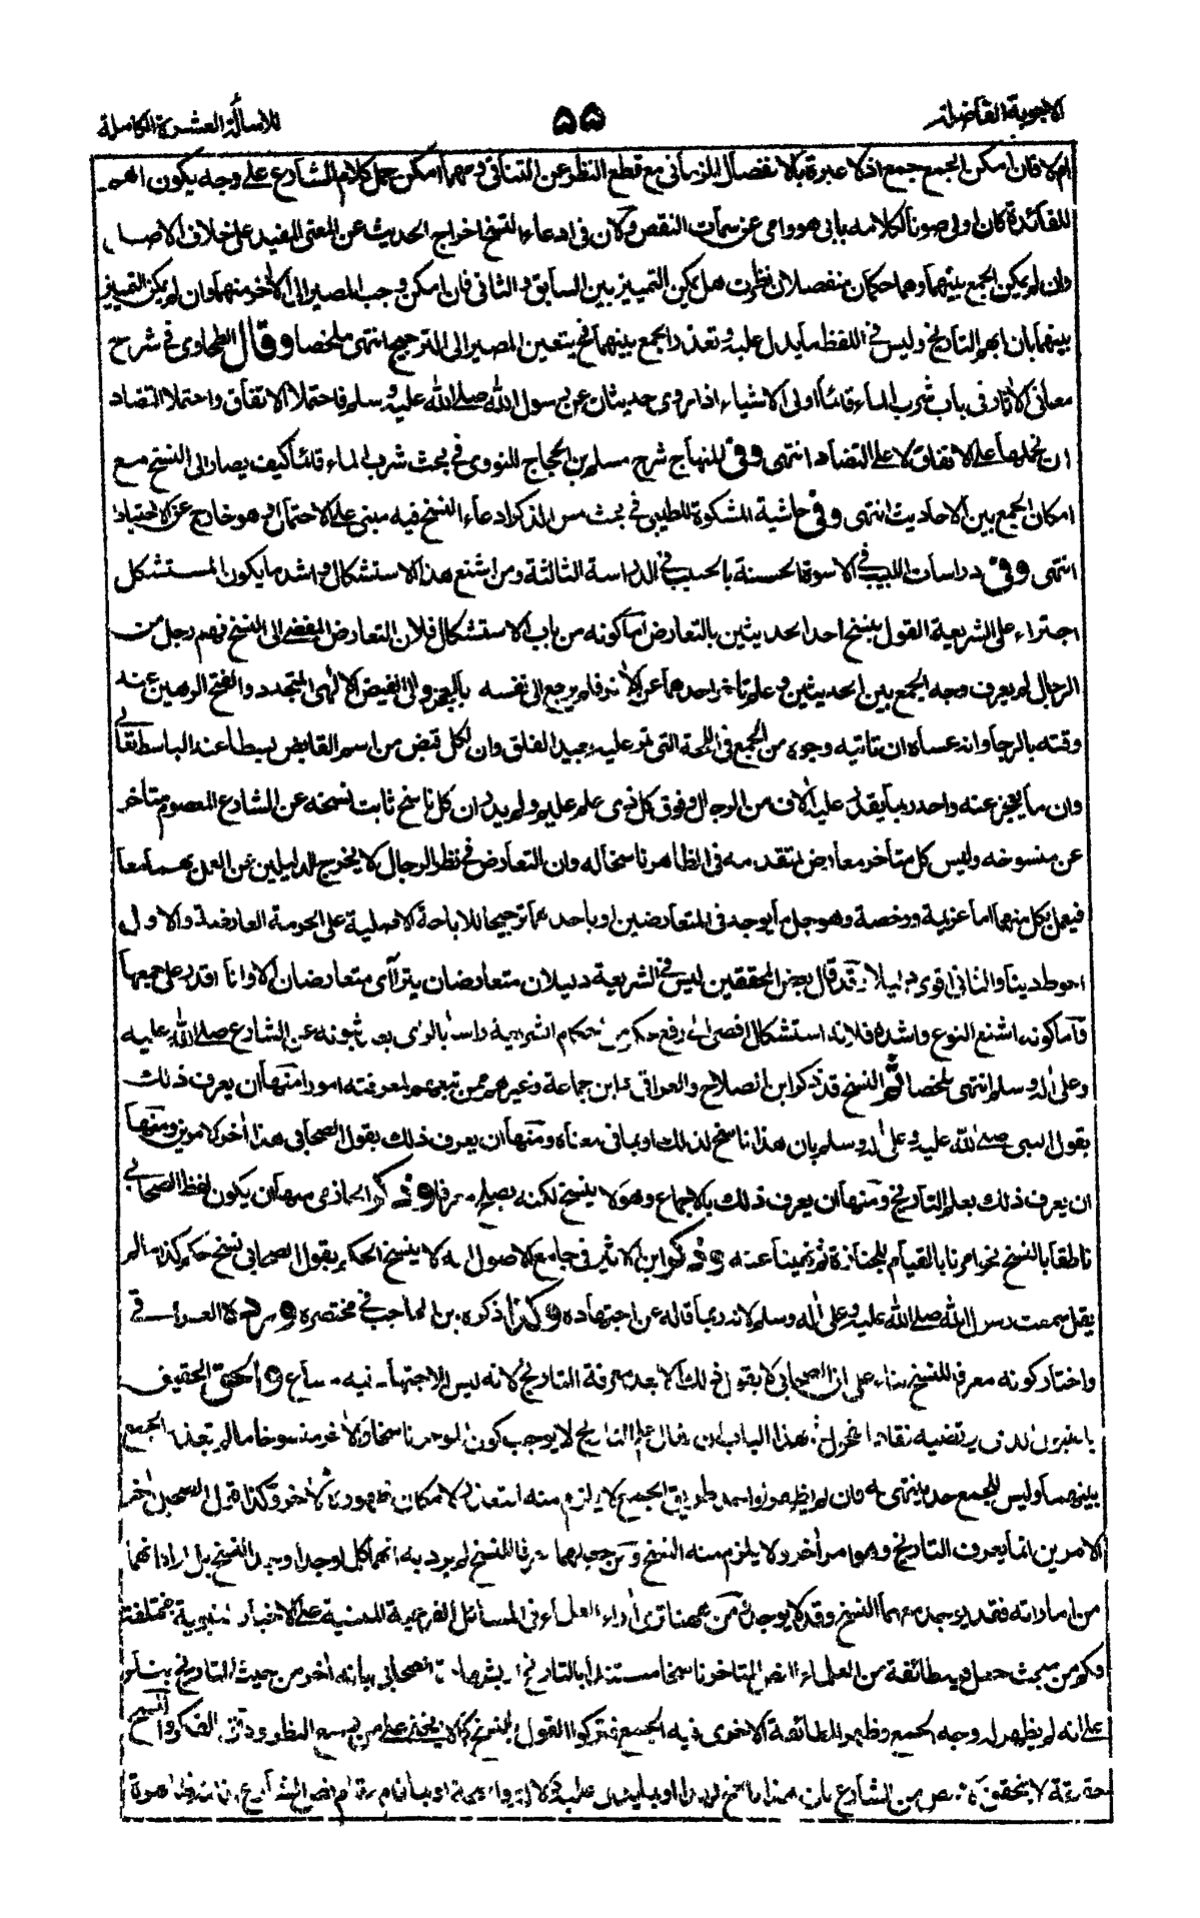 الاجوبة الفاضلة
٥٥
للاسألة العشرة الكاملة
ام لا فان امكن الجمع جمع اذ لا عبرة بالانفصال الزماني مع قطع النظر عن التنافي ومهما امكن حمل كلام الشارع على وجه يكون اعم
للفائدة كان اولى صونا لكلامه بابي هو وامي عن سمات النقص وكان في ادعاء النسخ اخراج الحديث عن المعنى المفيد على خلاف الاصل
وان لم يمكن الجمع بينهما وهما حكمان منفصلان نظرت هل يمكن التمييز بين السابق والثاني فان امكن وجب المصير الى الآخر منهما وان لم يمكن التمييز
بينهما بان ابهم التأريخ وليس في اللفظ ما يدل عليه وتعذر الجمع بينهما فح يتعين المصير الى الترجيح انتهى ملخصا وقال الطحاوى في شرح
معاني الآثار في باب شرب الماء قائما اولى الاشياء اذا روى حديثان عن رسول الله صلے الله عليه وسلم فاحتملا الاتفاق واحتملا التضاد
ان نحملهما على الاتفاق لا على التضاد انتهى وفى المنهاج شرح مسلم بن الحجاج للنووى في بحث شرب الماء قائما كيف يصار الى النسخ مع
امكان الجمع بين الاحاديث انتهى وفى حاشية المشكوة للطيبي في بحث مس الذكر ادعاء النسخ فيه مبنى على الاحتمال وهو خارج عن الاحتياط
انتهى وفى دراسات اللبيب في الاسوة الحسنة بالحبيب في الدراسة الثالثة ومن اشنع هذا الاستشكال واشد ما يكون المستشكل
اجتراء على الشريعة القول بنسخ احد الحديثين بالتعارض اما كونه من باب الاستشكال فلان التعارض المفضى الى النسخ فهم رجل من
الرجال لم يعرف وجه الجمع بين الحديثين وعلم تأخر احدهما عن الآخر فلم يرجع الى نفسه بالعجز والى الفيض الالهى المتجدد والفتح الرهين عنه
وقته بالرجا وانه عساه ان تأتيه وجوه من الجمع في اللمحة التى تمر عليه بعيد الفلق وان لكل قبض من اسم القابض بسطا عند الباسط تعالى
وان ما يعجز عنه واحد ربما يقدر عليه آلاف من الرجال وفوق كل ذى علم عليم ولم يدر ان كل ناسخ ثابت نسخه عن الشارع المعصوم متاخر
عن منسوخه وليس كل متأخر معارض لمتقدمه في الظاهر ناسخا له وان التعارض في نظر الرجال لا يخرج الدليلين عن العمل بهما معا
فيعمل بكل منهما اما عزيمة ورخصة وهو جل ما يوجد في المتعارضين او باحدهما ترجيحا للاباحة الاصلية على الحرمة العارضة والاول
احوط دينا والثاني اقوى دليلا وقد قال بعض المحققين ليس في الشريعة دليلان متعارضان يترآى متعارضان الا وانا اقدر على جمعهما
واما كونه اشنع النوع واشده فلانه استشكال افضى الى رفع حكم من احكام الشريعة راسا بالراى بعد ثبوته عن الشارع صلے الله عليه
وعلى آله وسلم انتهى ملخصا ثم النسخ قد ذكر ابن الصلاح والعراقى وابن جماعة وغيرهم ممن تبعهم لمعرفته امورا منها ان يعرف ذلك
بقول النبى صلے الله عليه وعلى آله وسلم بان هذا ناسخ لذلك او بما في معناه ومنها ان يعرف ذلك بقول الصحابي هذا آخر الامرين ومنها
ان يعرف ذلك بعلم التأريخ ومنها ان يعرف ذلك بالاجماع وهو لا ينسخ لكنه يصلح معرفا وذكر الحازمى منها ان يكون لفظ الصحابي
ناطقا بالنسخ نحو امرنا بالقيام للجنازة ثم نهينا عنه وذكر ابن الاثير في جامع الاصول انه لا ينسخ الحكم بقول الصحابي نسخ حكم كذا ما لم
يقل سمعت رسول الله صلے الله عليه وعلى آله وسلم لانه ربما قاله عن اجتهاده وكذا ذكره ابن الحاجب في مختصره ورده العراقي
واختار كونه معرفا للنسخ بناء على ان الصحابي لا يقول ذلك الا بعد معرفة التاريخ لانه ليس للاجتهاد فيه مساغ والحق الحقيق
بالقبول الذى يرتضيه نقاد الفحول في هذا الباب ان يقال علم التاريخ لا يوجب كون الموخر ناسخا والآخر منسوخا ما لم يتعذر الجمع
بينهما وليس للجمع حد ينتهى له فان لم يظهر لواحد طريق الجمع لا يلزم منه التعذر لامكان ظهوره لآخر وكذا قول الصحابي آخر
الامرين انما يعرف التاريخ وهو امر آخر ولا يلزم منه النسخ ومن جعلهما معرفا للنسخ لم يرد به انهما كل ما وجدا وجد النسخ بل اراد انهما
من اماراته فقد يوجد معهما النسخ وقد لا يوجد ومن ههنا ترى آراء العلماء في المسائل الفرعية المبنية على الاخبار النبوية مختلفة
وكم من مبحث جعل فيه طائفة من العلماء النص المتاخر ناسخا مستندا بالتاريخ الصحابي بيانه آخر من حيث التاريخ بناء
على انه لم يظهر له وجه الجمع وظهر للطائفة الاخرى فيه الجمع فتركوا القول بالنسخ كما لا يخفى على من وسع النظر ودقق الفكر والنسخ
حقيقة لا يتحقق الا بنص من الشارع بان هذا ناسخ